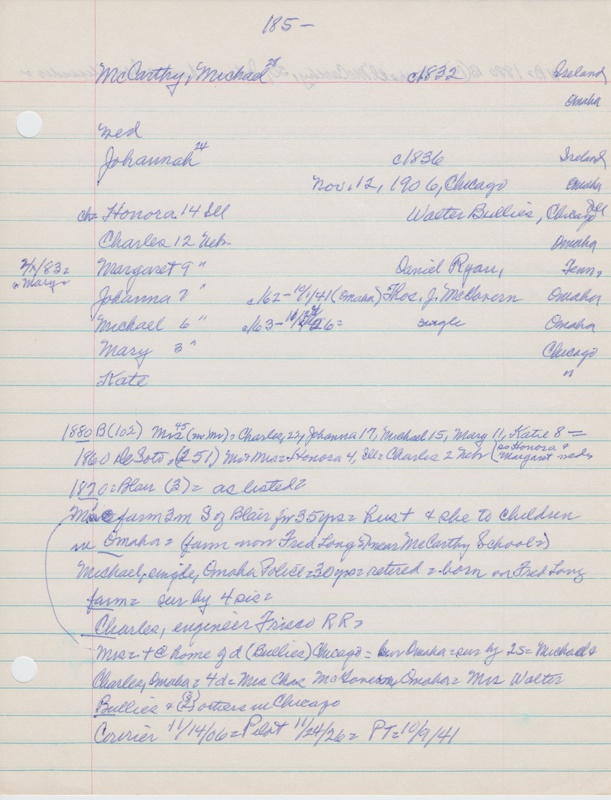 185-
McCarthy, Michael 28 c1832 Ireland
Omaha
wed
Johannah 24 c1836 Ireland
Nov. 12, 1906, Chicago Omaha
ch= Honora 14 Ill Walter Bullies, Chicago Ill
Charles 12 Neb. Omaha
Margaret 9 " Daniel Ryan, Tenn.
Mary=
Johanna 7 " c62- /41 (Omaha) Thos. J. McGovern Omaha
Michael 6 " c/63- 26= single Omaha
Mary 3 " Chicago
Kate "
1880 B(102) Mrs 45 = Charles, 22, Johanna 17, Michael 15, Mary 11, Katie 8=
1860 DeSoto, (251) Mr & Mrs= Honora 4, Ill= Charles 2 Neb (so Honora & Margaret weds
1870= Blair (3)= as listed=
farm 3m S of Blair for 35 yrs= hust & she to children
in Omaha= (farm now Fred Long= near McCarthy School=)
Michael, single, Omaha Police=30 yrs= retired= born on Fred Long
farm= sur by 4 sis=
Charles, engineer Frisco RR=
Mrs= + @ home of d (Bullies) Chicago= bur Omaha= sur by 2s= Michael &
Charles, Omaha= 4d= Mrs McGovern, Omaha= Mrs Walter
Bullies & (2) others in Chicago
Courier 11/14/06= Pilot 11/24/26= PT=10/9/41